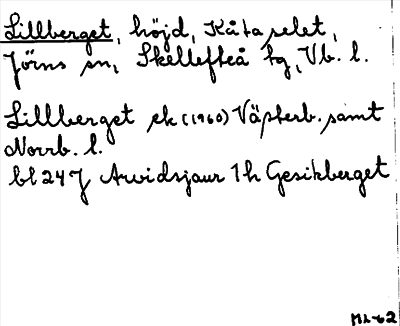 Lillberget, höjd, Kåtaselet,
Jörns sn, Skellefteå tg, Vb. l.
Lillberget ek (1960) Västerb. samt
Norrb. l.
bl 24 J Arvidsjaur 1 h Gesikberget
ML-62